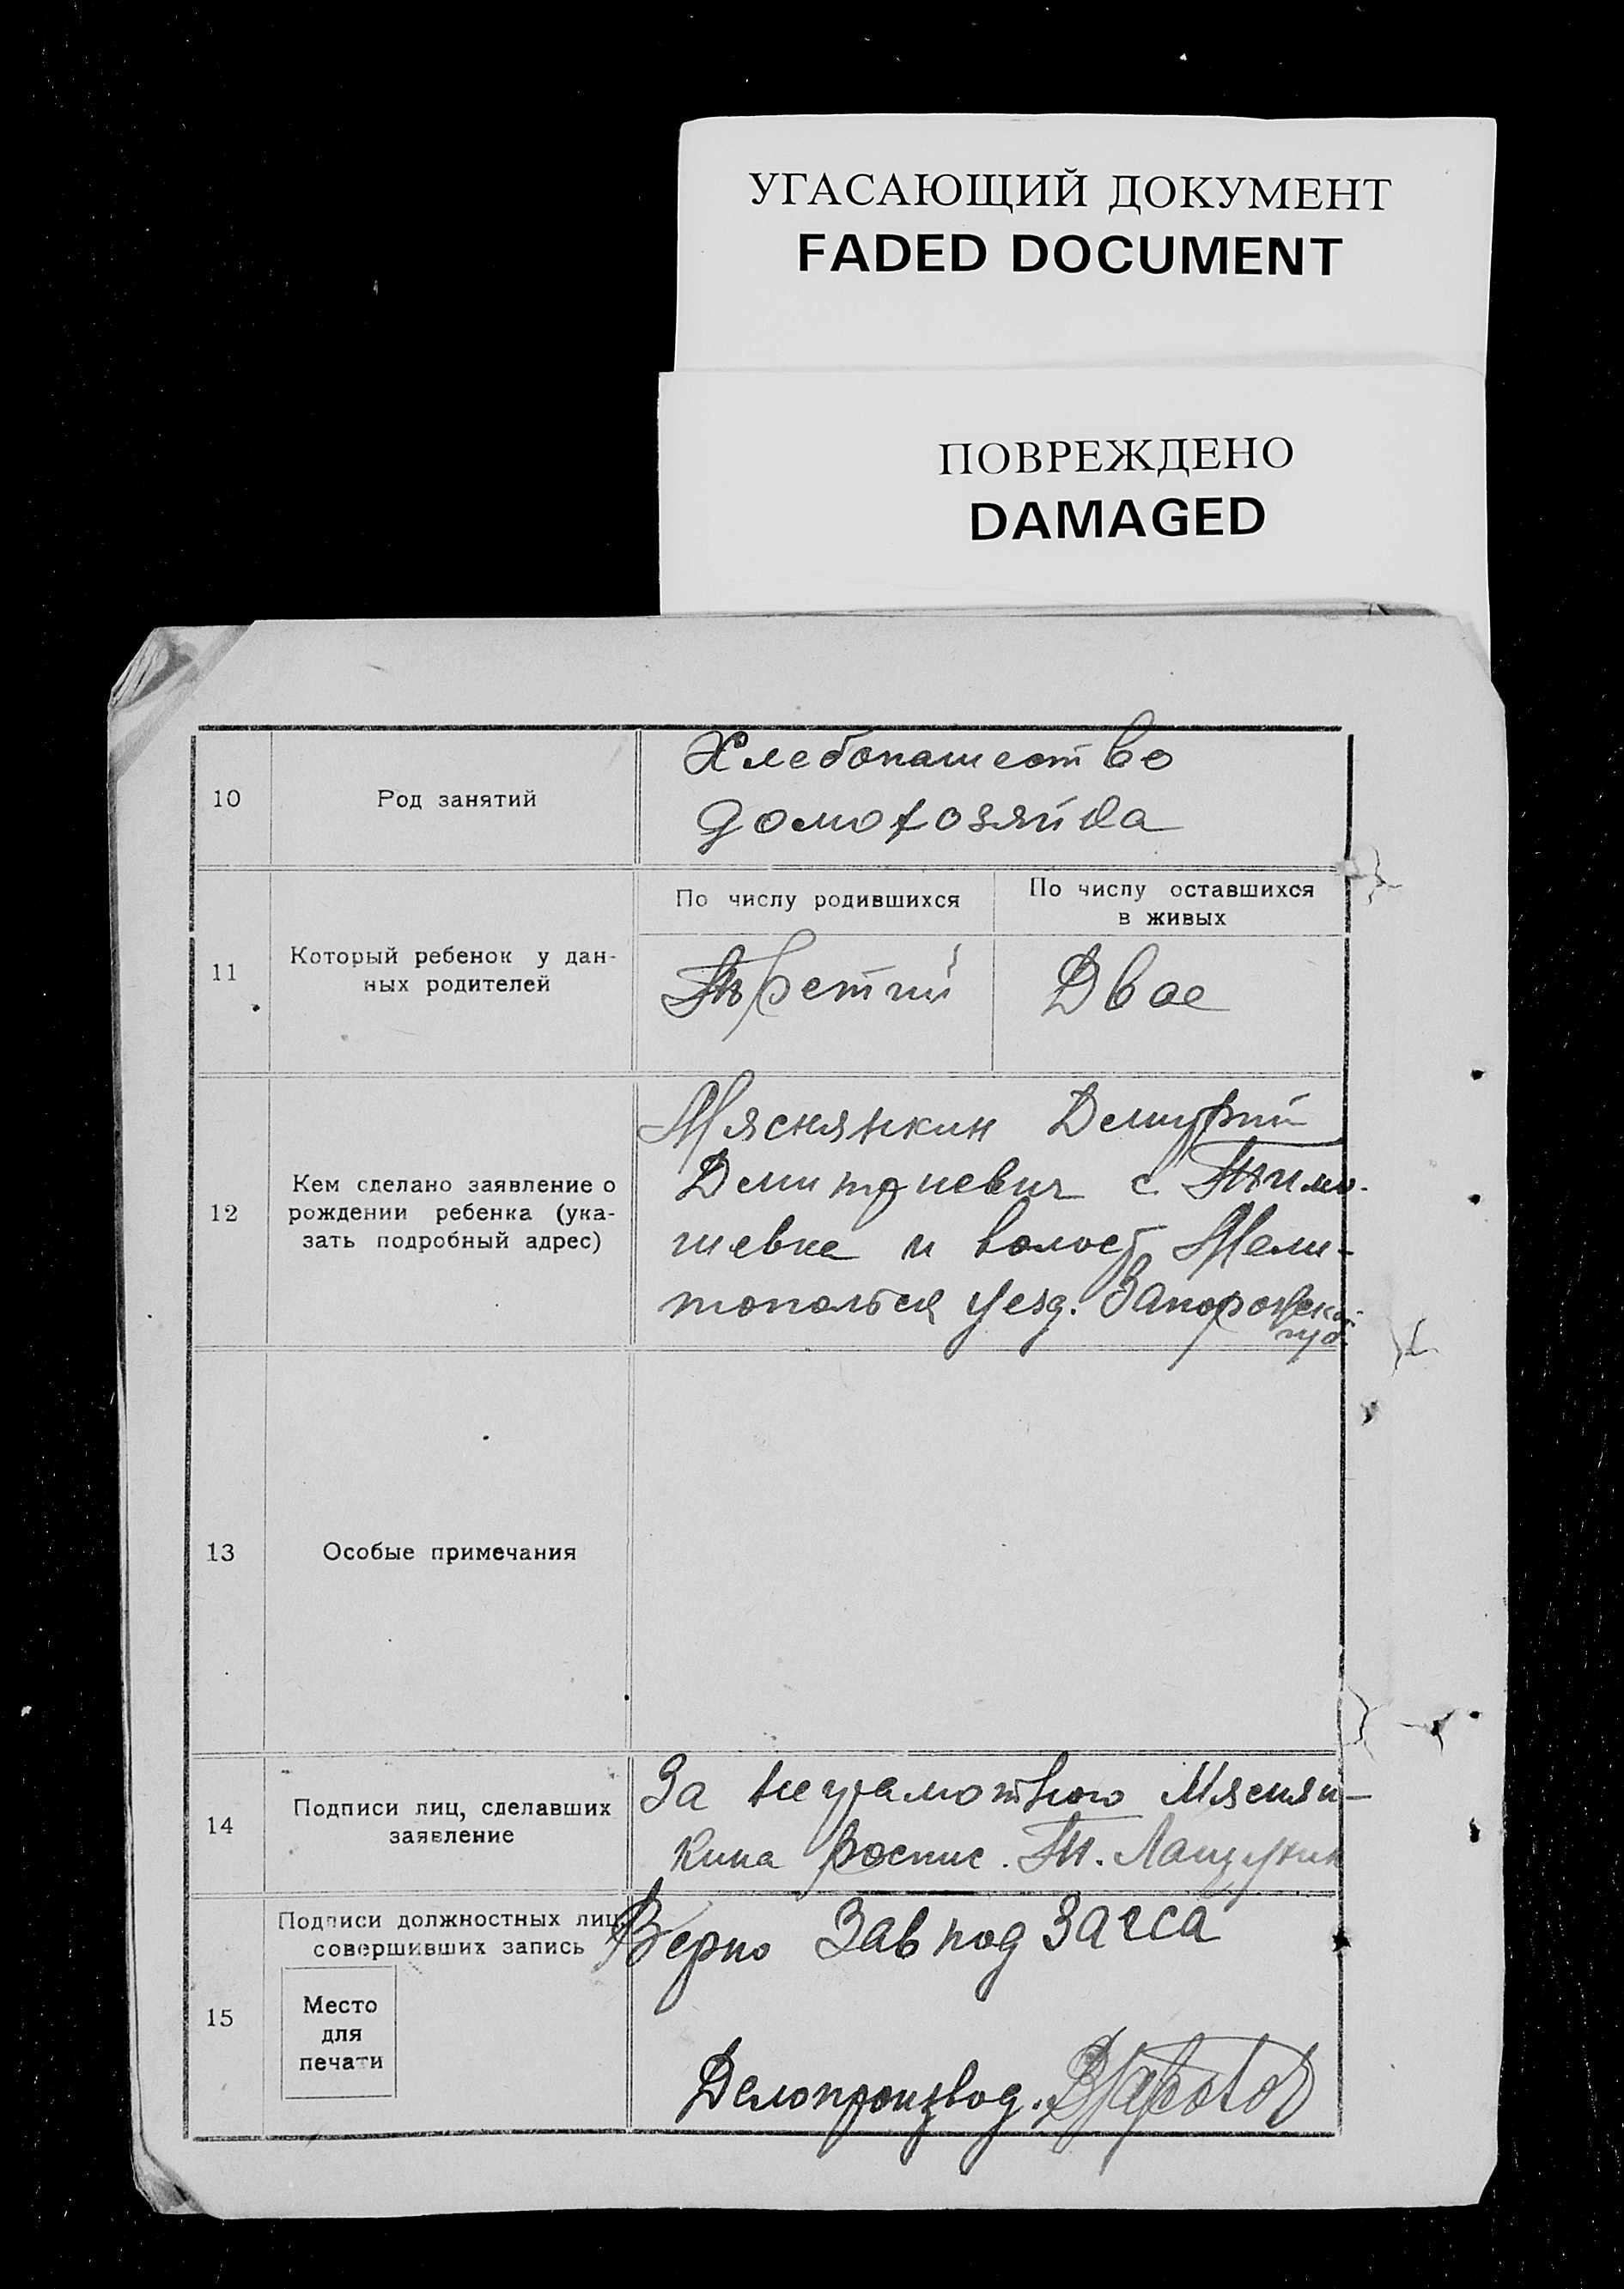 УГАСАЮЩИЙ ДОКУМЕНТ
FADED DOCUMENT
ПОВРЕЖДЕНО
DAMAGED
10
Род занятий
Хлебопашество
домохозяйка
11
Который ребенок у дан-
ных родителей
По числу родившихся
По числу оставшихся
в живых
Третий
Двое
12
Кем сделано заявление о
рождении ребенка (ука-
зать подробный адрес)
Мяснянкин Демитрий
Демитриевич с. Тимо-
шевке и волост Мели-
топольск уезд. Запорожской
губ.
13
Особые примечания
14
Подписи лиц, сделавших
заявление
За неграмотного Мяснян-
кина роспис. Т.
15
Подписи должностных лиц,
совершивших запись
Место
для
печати
Верно Зав под Загса
Делопроизвод.